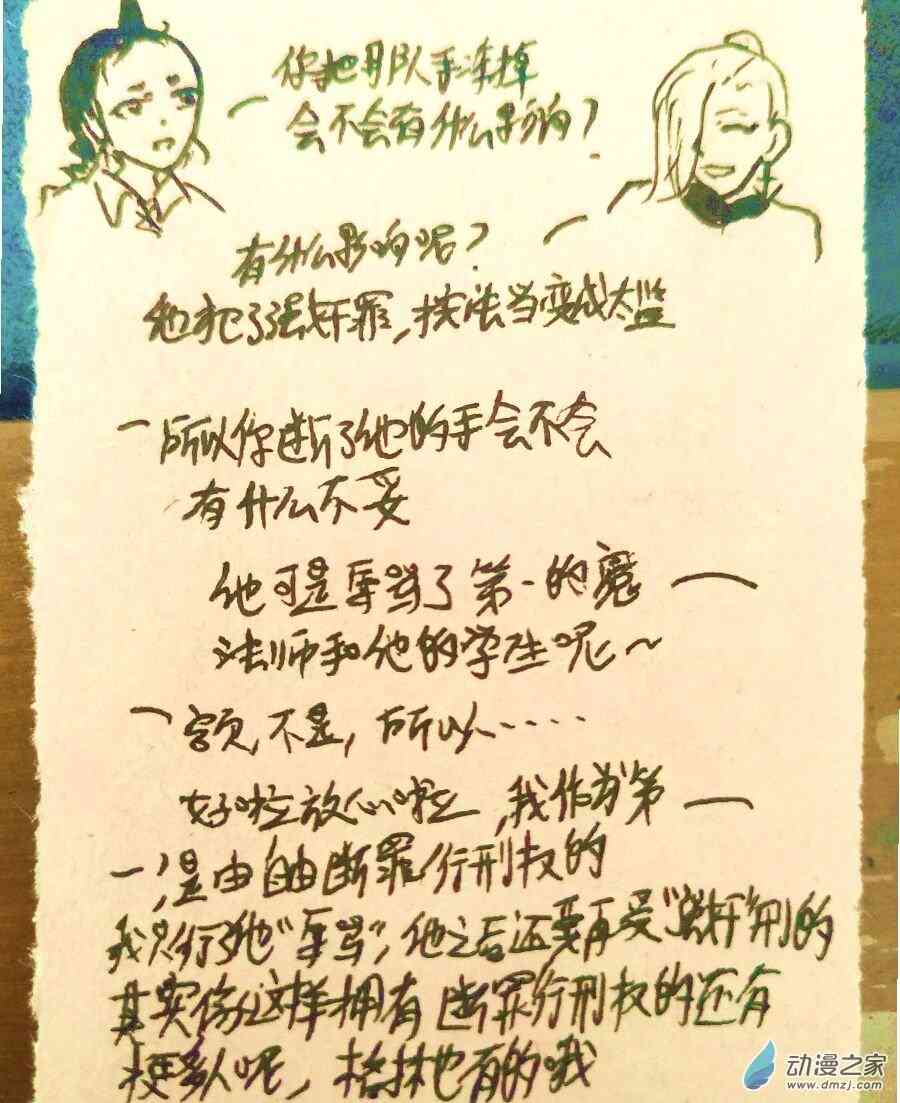 你把那队手冻掉
会不会有什么影响？
有什么影响呢？
他犯了强奸罪，按法当变成太监
所以你断了他的手会不会
有什么不妥
他可是辱骂了第一的魔
法师和他的学生呢～
额，不是，所以……
好啦放心啦，我作为第
一，是由自由断罪行刑权的
我只行了他“辱骂”，他之后还要再受“强奸”刑的
其实像这样拥有断罪行刑权的还有
挺多人呢，格林也有的哦
动漫之家
www.dmzj.com